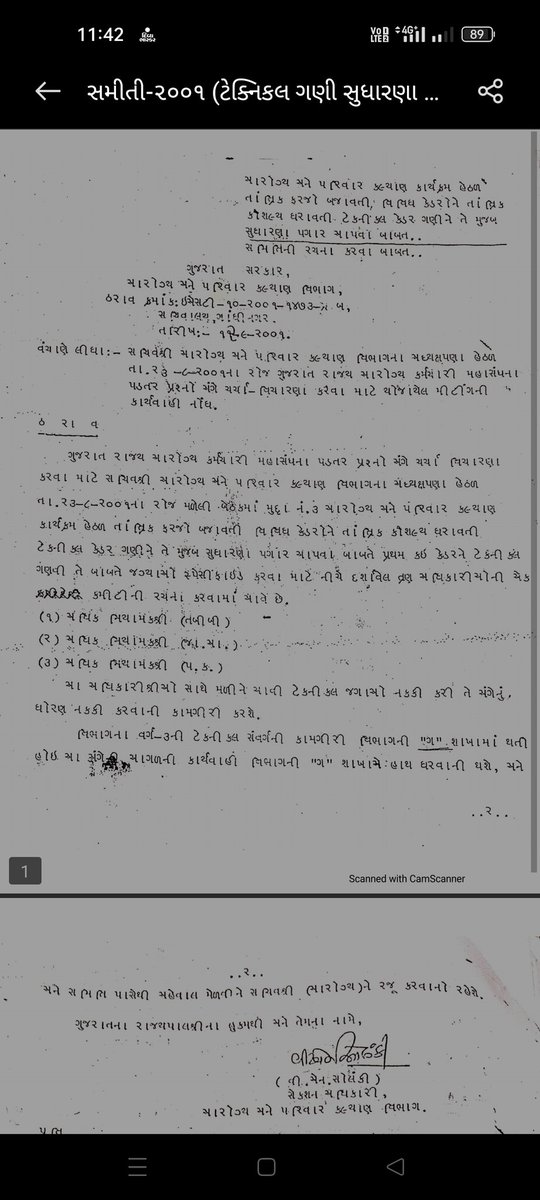 11:42
Vo LTE 2 4G+ 89
સમીતી-૨૦૦૧ (ટેક્નિકલ ગણી સુધારણા ...
આરોગ્ય અને પરિવાર કલ્યાણ કાર્યક્રમ હેઠળ
તાંત્રિક ફરજો બજાવતી, વિવિધ કેડરોને તાંત્રિક
કૌશલ્ય ધરાવતી ટેકનીકલ કેડર ગણીને તે મુજબ
સુધારણા પગાર આપવા બાબત..
સમિતિની રચના કરવા બાબત..
ગુજરાત સરકાર,
આરોગ્ય અને પરિવાર કલ્યાણ વિભાગ,
ઠરાવ ક્રમાંક: એચએસટી-૧૦-૨૦૦૧-૧૪૭૩-અ બ,
સચિવાલય, ગાંધીનગર.
તારીખ:- -૯-૨૦૦૧.
વંચાણે લીધા:- સચિવશ્રી આરોગ્ય અને પરિવાર કલ્યાણ વિભાગના અધ્યક્ષપણા હેઠળ
તા.૨૩-૮-૨૦૦૧ના રોજ ગુજરાત રાજ્ય આરોગ્ય કર્મચારી મહાસંઘના
પડતર પ્રશ્નો અંગે ચર્ચા-વિચારણા કરવા માટે યોજાયેલ મીટીંગની
કાર્યવાહી નોંધ.
ઠ રા વ
ગુજરાત રાજ્ય આરોગ્ય કર્મચારી મહાસંઘના પડતર પ્રશ્નો અંગે ચર્ચા વિચારણા
કરવા માટે સચિવશ્રી આરોગ્ય અને પરિવાર કલ્યાણ વિભાગના અધ્યક્ષપણા હેઠળ
તા.૨૩-૮-૨૦૦૧ના રોજ મળેલી બેઠકમાં મુદ્દા નં.૩ આરોગ્ય અને પરિવાર કલ્યાણ
કાર્યક્રમ હેઠળ તાંત્રિક ફરજો બજાવતી વિવિધ કેડરોને તાંત્રિક કૌશલ્ય ધરાવતી
ટેકનીકલ કેડર ગણીને તે મુજબ સુધારણા પગાર આપવા બાબતે પ્રથમ કઇ કેડરને ટેકનીકલ
ગણવી તે બાબતે જગ્યાઓ સ્પેસીફાઇડ કરવા માટે નીચે દર્શાવેલ ત્રણ અધિકારીઓની એક
કમીટીની રચના કરવામાં આવે છે.
(૧) અધિક નિયામકશ્રી (તબીબી)
(૨) અધિક નિયામકશ્રી (જા.આ.)
(૩) અધિક નિયામકશ્રી (પ.ક.)
આ અધિકારીશ્રીઓ સાથે મળીને આવી ટેકનીકલ જગાઓ નકકી કરી તે અંગેનું
ધોરણ નકકી કરવાની કામગીરી કરશે.
વિભાગના વર્ગ-૩ની ટેકનીકલ સંવર્ગની કામગીરી વિભાગની "ગ" શાખામાં થતી
હોઇ આ અંગેની આગળની કાર્યવાહી વિભાગની "ગ" શાખાએ હાથ ધરવાની થશે, અને
..૨..
1
Scanned with CamScanner
..૨..
અને સમિતિ પાસેથી અહેવાલ મેળવીને સચિવશ્રી (આરોગ્ય)ને રજૂ કરવાનો રહેશે.
ગુજરાતના રાજ્યપાલશ્રીના હુકમથી અને તેમના નામે,
(વી.એન.સોલંકી)
સેક્શન અધિકારી,
આરોગ્ય અને પરિવાર કલ્યાણ વિભાગ.